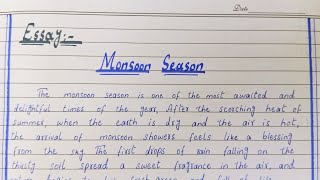 Date
Essay:-
Monsoon Season
The monsoon season is one of the most awaited and
delightful times of the year, After the scorching heat of
summer, when the earth is dry and the air is hot,
the arrival of monsoon showers feels like a blessing
from the sky. The first drops of rain falling on the
thirsty soil spread a sweet fragrance in the air, and